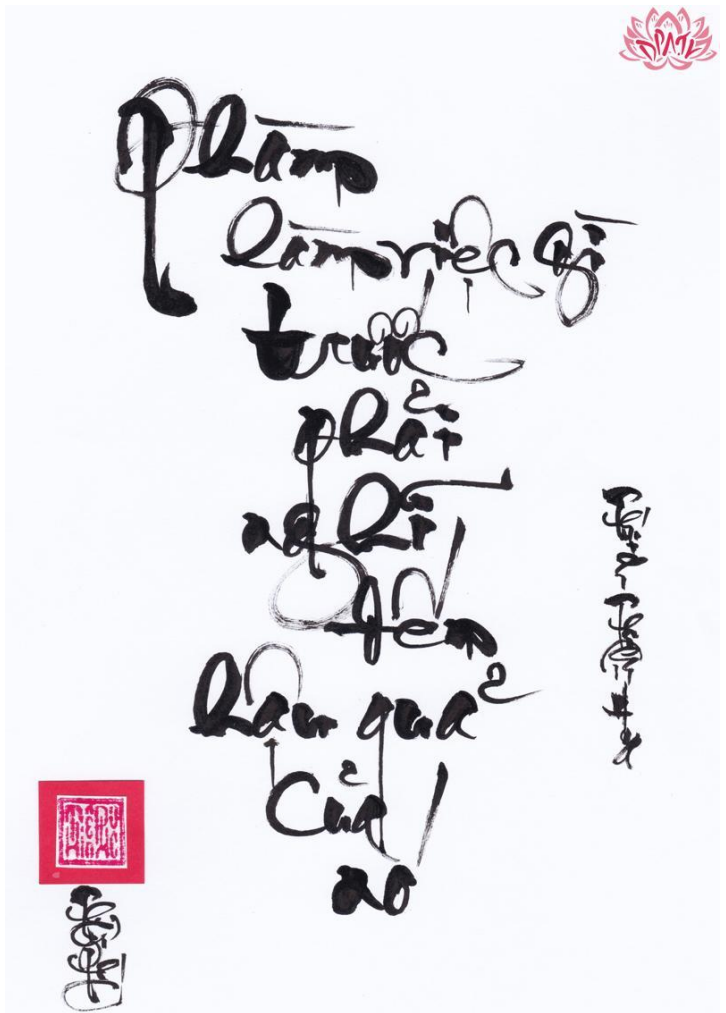 Phàm
làm việc gì
trước
phải
nghĩ
đến
hậu quả
của
nó